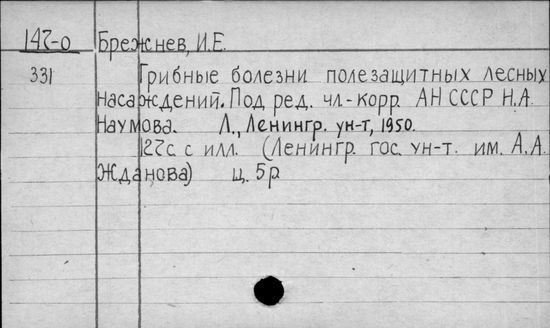 147-о Брежнев, И.Е.
331 Грибные болезни полезащитных лесных
насаждений. Под ред. чл-корр. АН СССР Н.А.
Наумова. Л., Ленингр. ун-т, 1950.
127с с илл. (Ленингр. гос. ун-т. им. А.А.
Жданова) ц. 5р